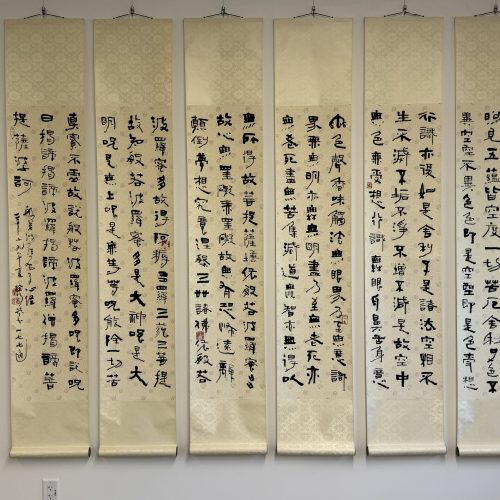 照見五蘊皆空度一切苦厄舍利子色不
異空空不異色色即是空空即是色受想
行識亦復如是舍利子是諸法空相不
生不滅不垢不淨不增不減是故空中
無色無受想行識無眼耳鼻舌身意
色聲香味觸法無眼界乃至無意識
界無無明亦無無明盡乃至無老死亦
無老死盡無苦集滅道無智亦無得以
無所得故菩提薩埵依般若波羅蜜多
故心無罣礙無罣礙故無有恐怖遠離
顛倒夢想究竟涅槃三世諸佛依般若
波羅蜜多故得阿耨三藐三菩提
故知般若波羅蜜多是大神呪是大
明呪是無上呪是無等等呪能除一切苦
真實不虛故說般若波羅蜜多呪即說呪
曰揭諦揭諦波羅揭諦波羅僧揭諦菩
提薩婆訶
般若波羅蜜多心經